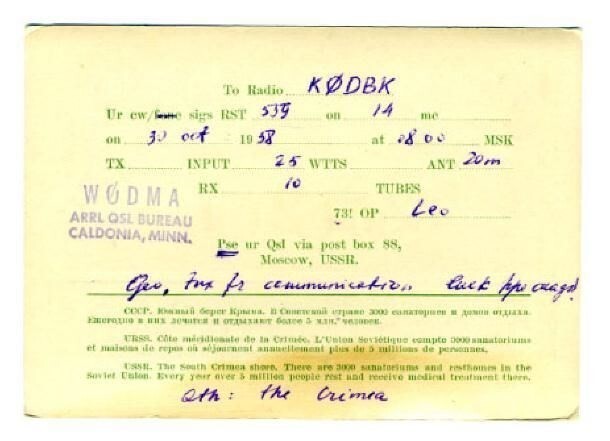 To Radio KØDBK
Ur cw/fone sigs RST 539 on 14 mc
on 30 oct 1958 at 08 00 MSK
TX INPUT 25 WTTS ANT 20m
RX 10 TUBES
73! OP Leo
WØDMA
ARRL QSL BUREAU
CALDONIA, MINN.
Pse ur Qsl via post box 88,
Moscow, USSR.
Geo, Tnx fr communication.
СССР. Южный берег Крыма. В Советской стране 3000 санаториев и домов отдыха.
Ежегодно в них лечатся и отдыхают более 5 млн. человек.
URSS. Côte méridionale de la Crimée. L'Union Soviétique compte 3000 sanatoriums
et maisons de repos où séjournent annuellement plus de 5 millions de personnes.
USSR. The South Crimea shore. There are 3000 sanatoriums and resthomes in the
Soviet Union. Every year over 5 million people rest and receive medical treatment there.
Qth: the Crimea